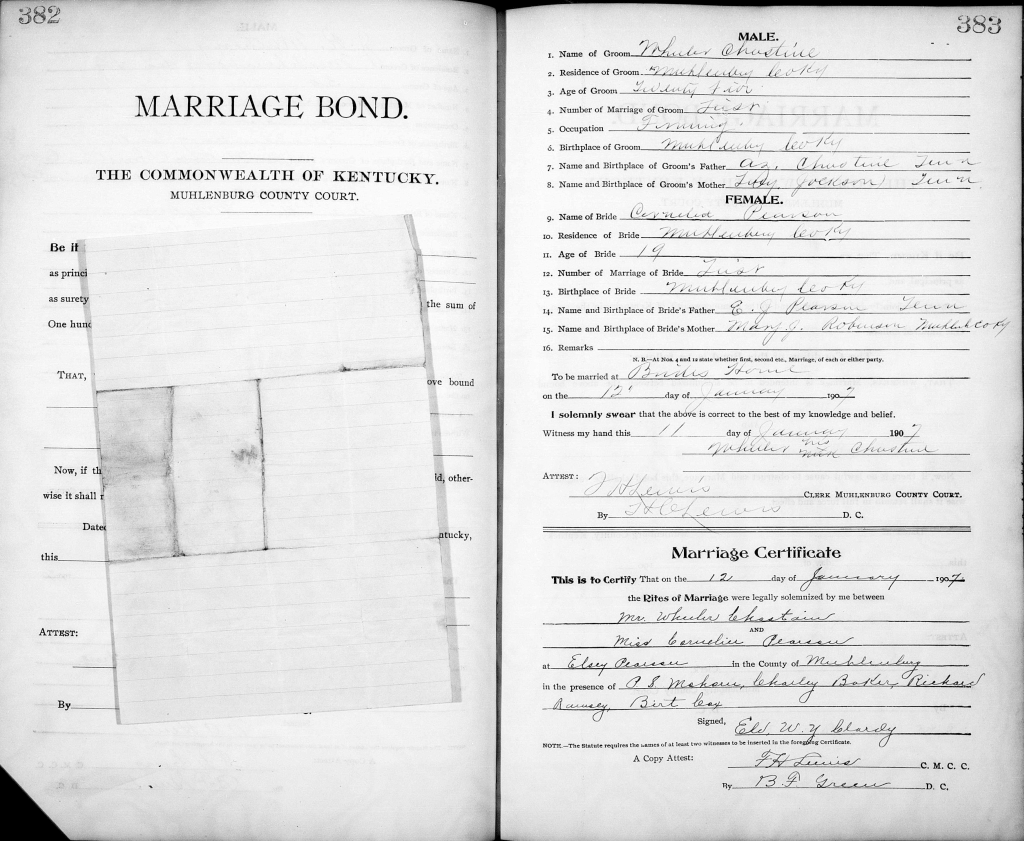 382
MARRIAGE BOND.
THE COMMONWEALTH OF KENTUCKY.
MUHLENBURG COUNTY COURT.
Be it
as princi
as surety
the sum of
One hund
THAT,
ove bound
Now, if th
id, other-
wise it shall
Date
ntucky,
this
ATTEST:
By
383
MALE.
1. Name of Groom Wheeler Chastine
2. Residence of Groom Muhlenburg Co Ky
3. Age of Groom Twenty
4. Number of Marriage of Groom First
5. Occupation Farming
6. Birthplace of Groom Muhlenburg Co Ky
7. Name and Birthplace of Groom's Father Chastine Tenn
8. Name and Birthplace of Groom's Mother Jackson Tenn.
FEMALE.
9. Name of Bride Cornelia Pearson
10. Residence of Bride Muhlenburg Co Ky
11. Age of Bride 19
12. Number of Marriage of Bride First
13. Birthplace of Bride Muhlenburg Co Ky
14. Name and Birthplace of Bride's Father E. J Pearson Tenn
15. Name and Birthplace of Bride's Mother Mary J. Robinson Co Ky
16. Remarks
N. B.—At Nos. 4 and 12 state whether first, second etc., Marriage, of each or either party.
To be married at Brides Home
on the 12 day of January 1907
I solemnly swear that the above is correct to the best of my knowledge and belief.
Witness my hand this 11 day of January 1907
Wheeler his mark Chastine
ATTEST:
Lewis CLERK MUHLENBURG COUNTY COURT.
By Lewis D. C.
Marriage Certificate
This is to Certify That on the 12 day of January 1907.
the Rites of Marriage were legally solemnized by me between
Mr. Wheeler Chastain
AND
Miss Cornelia Pearson
at Elsey Pearson in the County of Muhlenburg
in the presence of Charley Baker, Richard
Ramsey, Birt Cox
Signed, Eld. W. Y Clardy
NOTE.—The Statute requires the names of at least two witnesses to be inserted in the foregoing Certificate.
A Copy Attest: F H Lewis C. M. C. C.
By B. F Green D. C.